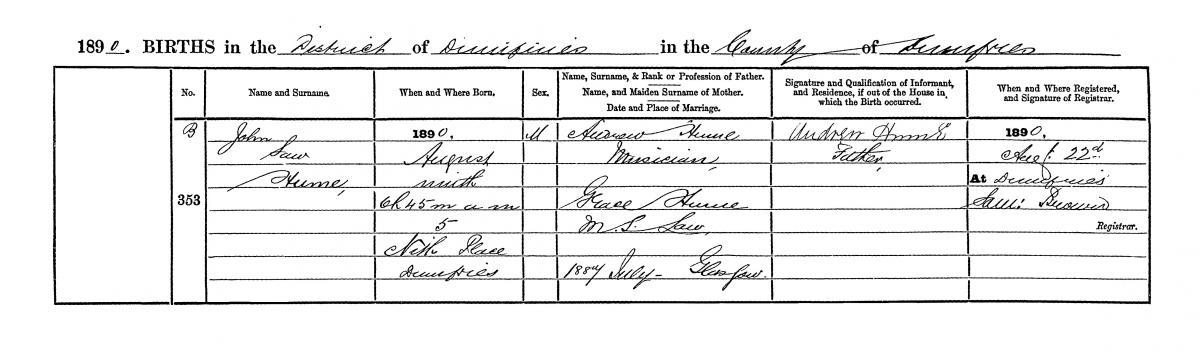 1890. BIRTHS in the District of Dumfries in the County of Dumfries
No.
Name and Surname.
When and Where Born.
Sex.
Name, Surname, & Rank or Profession of Father.
Name, and Maiden Surname of Mother.
Date and Place of Marriage.
Signature and Qualification of Informant,
and Residence, if out of the House in
which the Birth occurred.
When and Where Registered,
and Signature of Registrar.
B
353
John
Law
Hume,
1890,
August
ninth
6h 45m a m
5
Nith Place
Dumfries
M
Andrew Hume
Musician,
Grace Hume
M.S. Law,
1887 July - Glasgow.
Andrew Hume
Father,
1890,
Aug: 22d
At Dumfries
Saml:
Registrar.